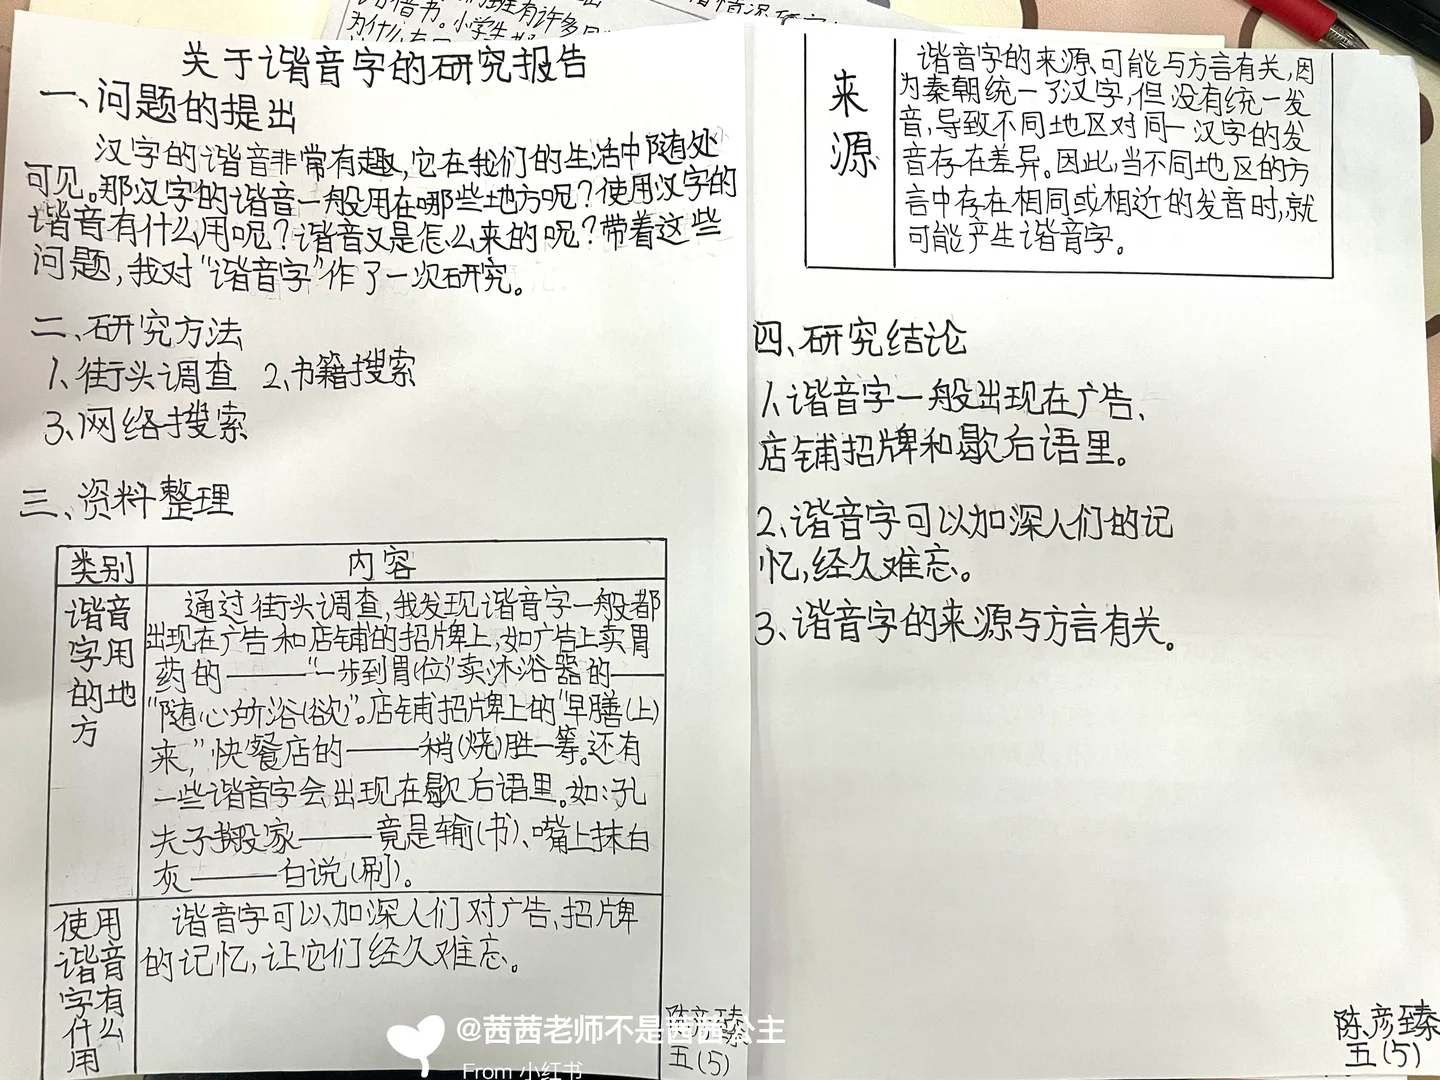 关于谐音字的研究报告
一、问题的提出
汉字的谐音非常有趣,它在我们的生活中随处
可见。那汉字的谐音一般用在哪些地方呢?使用汉字的
谐音有什么用呢?谐音又是怎么来的呢?带着这些
问题,我对“谐音字”作了一次研究。
二、研究方法
1、街头调查 2、书籍搜索
3、网络搜索
三、资料整理
类别 内容
谐音
字用
的地
方
通过街头调查,我发现谐音字一般都
出现在广告和店铺的招牌上,如广告上卖胃
药的——“一步到胃(位)”卖沐浴器的——
“随心所浴(欲)”。店铺招牌上的“早膳(上)
来,”快餐店的——稍(烧)胜一筹。还有
一些谐音字会出现在歇后语里。如:孔
夫子搬家——竟是输(书)、嘴上抹白
灰——白说(刷)。
使用
谐音
字有
什么
用
谐音字可以加深人们对广告、招牌
的记忆,让它们经久难忘。
陈彦臻
五(5)
来
源
谐音字的来源可能与方言有关,因
为秦朝统一了汉字,但没有统一发
音,导致不同地区对同一汉字的发
音存在差异。因此,当不同地区的方
言中存在相同或相近的发音时,就
可能产生谐音字。
四、研究结论
1、谐音字一般出现在广告、
店铺招牌和歇后语里。
2、谐音字可以加深人们的记
忆,经久难忘。
3、谐音字的来源与方言有关。
陈彦臻
五(5)
@茜茜老师不是茜茜公主
From 小红书